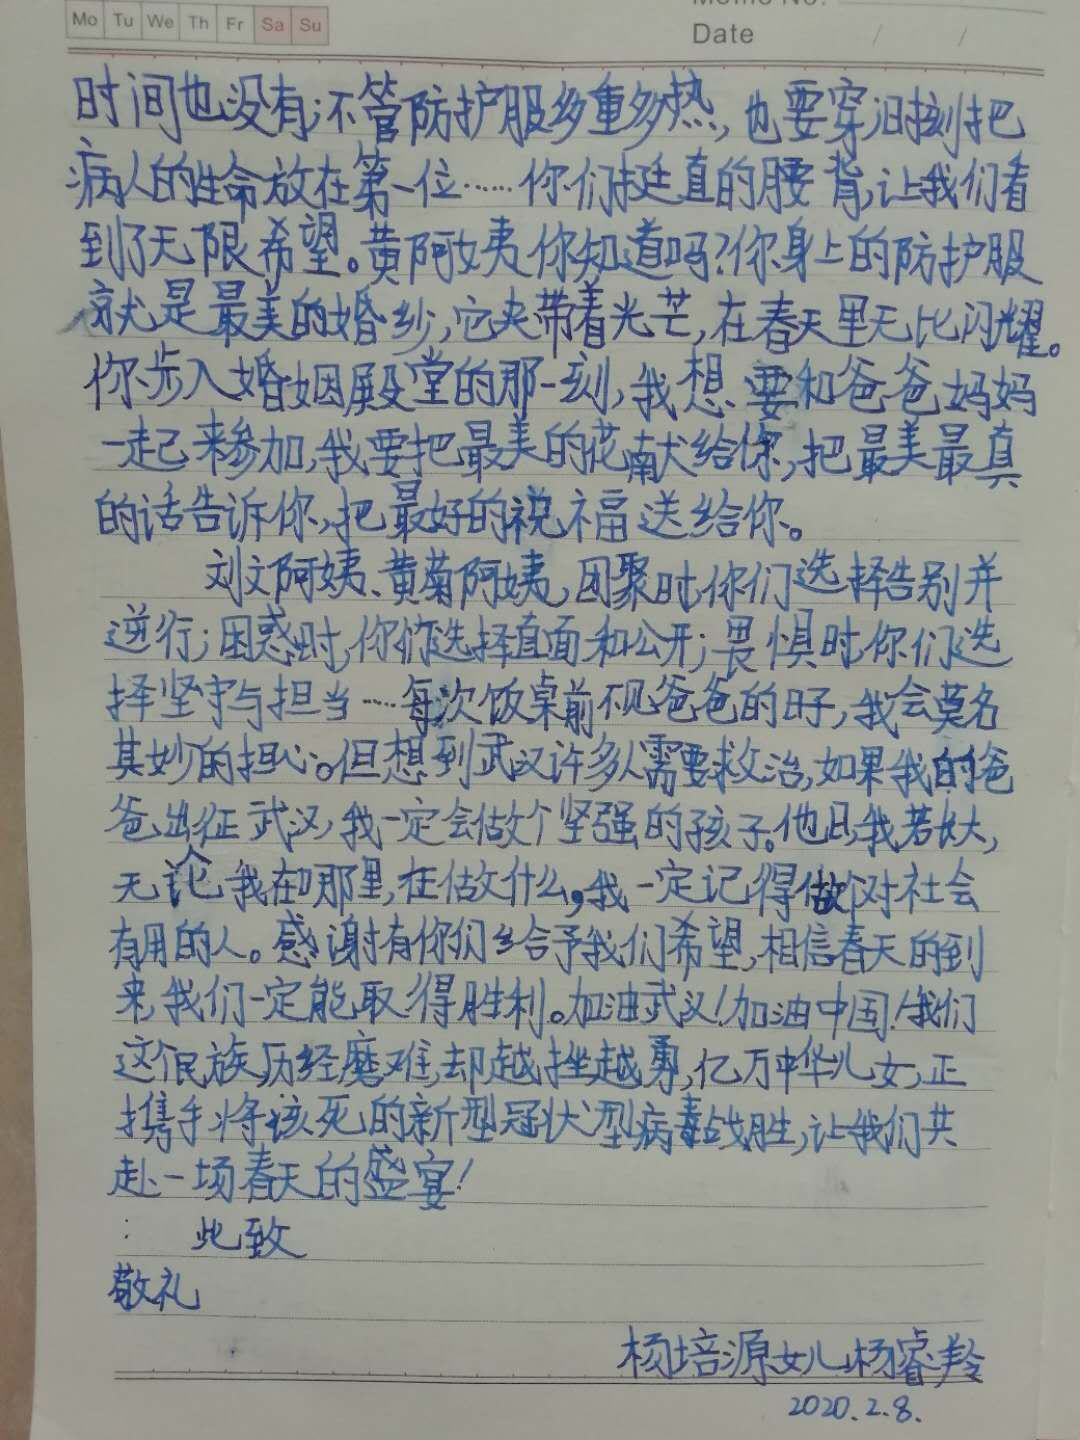 Mo Tu We Th Fr Sa Su
Memo No.
Date / /
时间也没有;不管防护服多重多热,也要穿;时刻把
病人的性命放在第一位……你们挺直的腰背,让我们看
到了无限希望。黄阿姨你知道吗?你身上的防护服
就是最美的婚纱,它夹带着光芒,在春天里无比闪耀。
你步入婚姻殿堂的那一刻,我想要和爸爸妈妈
一起来参加,我要把最美的花献给你,把最美最真
的话告诉你,把最好的祝福送给你。
刘文阿姨、黄菊阿姨,团聚时,你们选择告别并
逆行;困惑时,你们选择直面和公开;畏惧时,你们选
择坚守与担当……每次饭桌前不见爸爸的日子,我会莫名
其妙的担心。但想到武汉许多人需要救治,如果我的爸
爸出征武汉,我一定会做个坚强的孩子。他日我若长大,
无论我在哪里,在做什么,我一定记得做个对社会
有用的人。感谢有你们给予我们希望,相信春天的到
来,我们一定能取得胜利。加油武汉!加油中国!我们
这个民族历经磨难,却越挫越勇,亿万中华儿女,正
携手将该死的新型冠状型病毒战胜,让我们共
赴一场春天的盛宴!
此致
敬礼
杨培源女儿杨睿羚
2020.2.8.